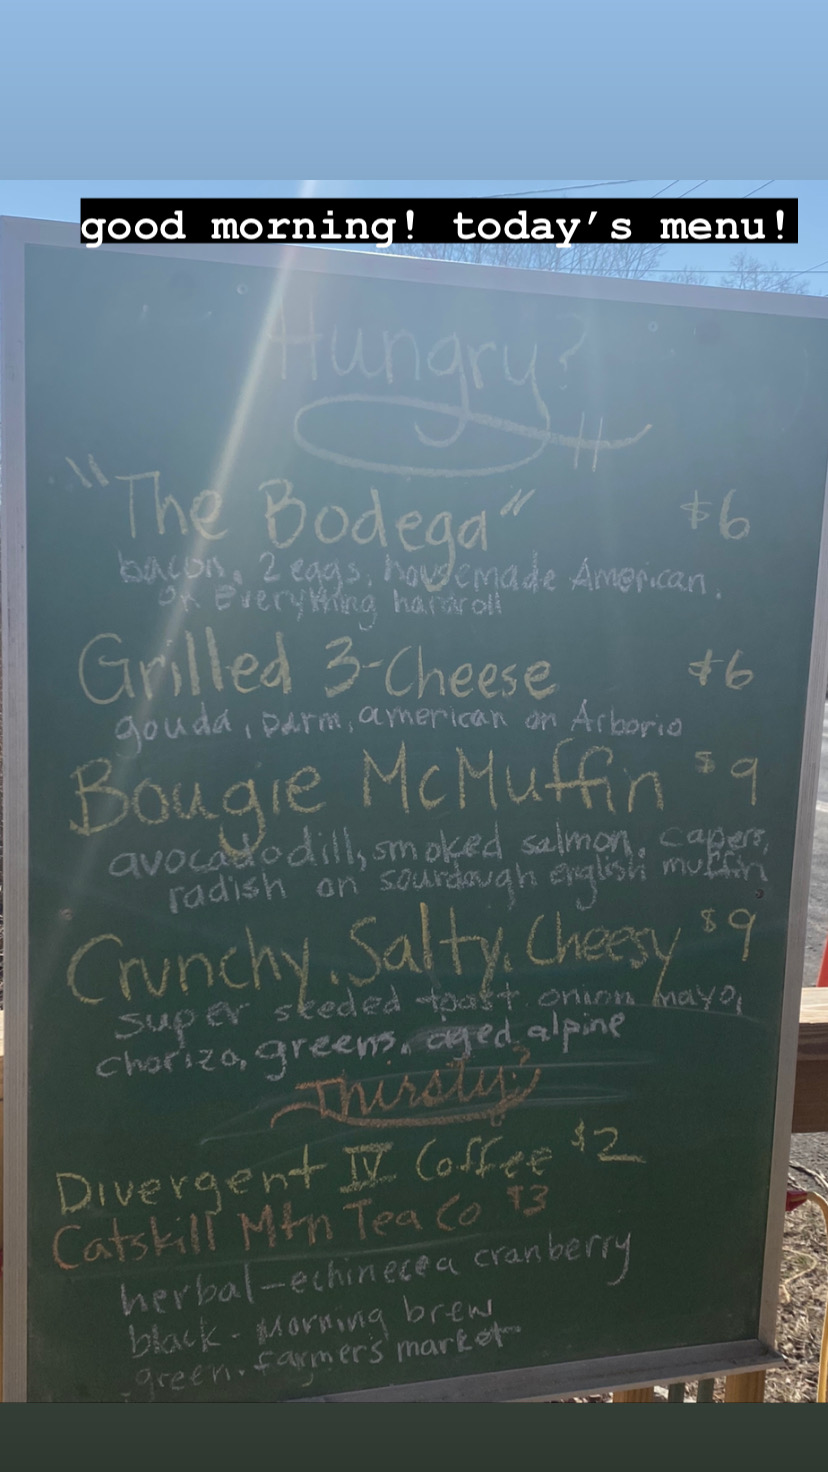 good morning! today's menu!
Hungry?
"The Bodega" $6
bacon, 2 eggs, housemade American,
on Everything hardroll
Grilled 3-Cheese $6
gouda, parm, american on Arborio
Bougie McMuffin $9
avocado dill, smoked salmon, capers,
radish on sourdough english muffin
Crunchy, Salty, Cheesy $9
super seeded toast, onion mayo,
chorizo, greens, aged alpine
Thirsty?
Divergent IV Coffee $2
Catskill Mtn Tea Co $3
herbal-echinecea cranberry
black- Morning brew
green. farmers market